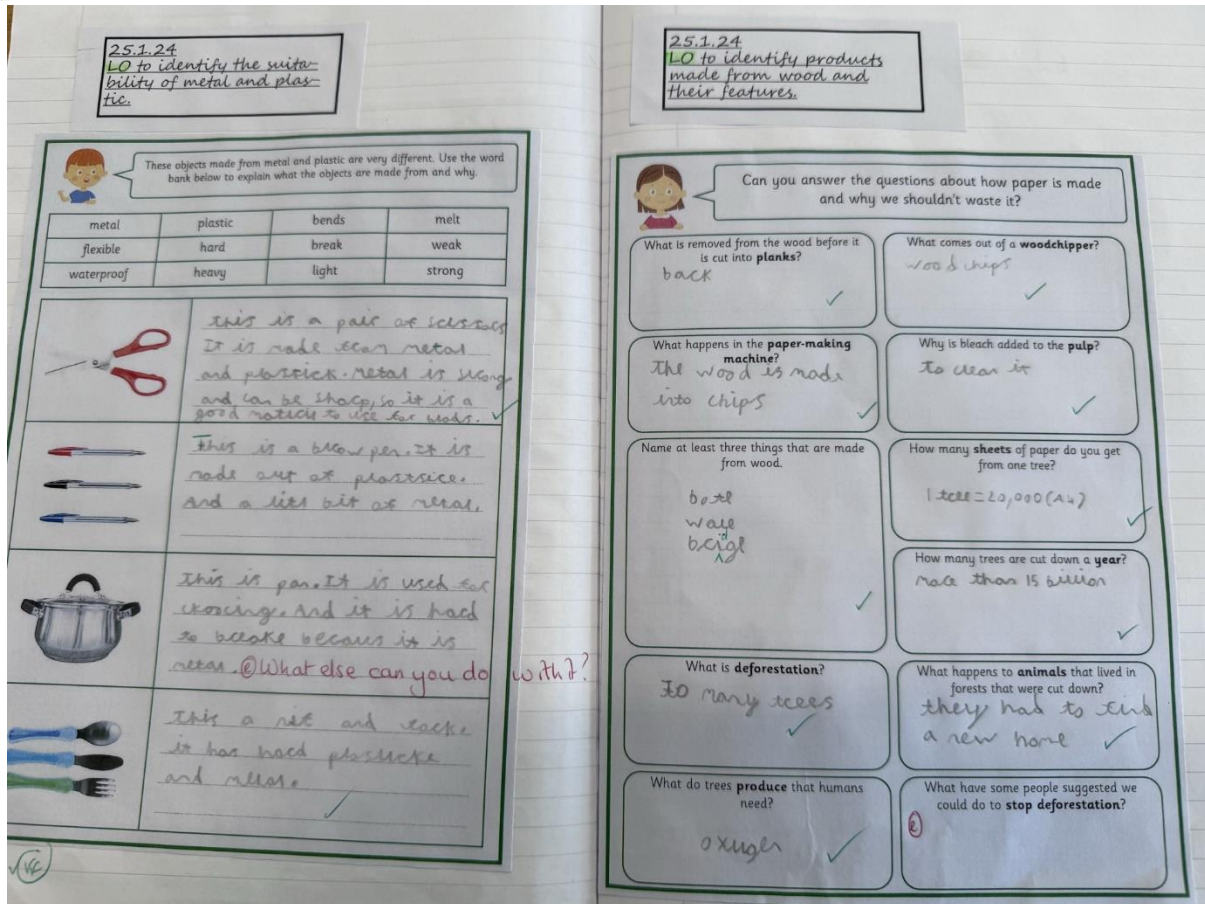 25.1.24
LO to identify the suita-
bility of metal and plas-
tic.
These objects made from metal and plastic are very different. Use the word
bank below to explain what the objects are made from and why.
metal plastic bends melt
flexible hard break weak
waterproof heavy light strong
this is a pair of scissors
It is made from metal
and plastick. Metal is strong
and can be sharp, so it is a
good to use for
This is a pen. It is
made out of
And a litl bit of metal.
This is pan. It is used for
And it is hard
to breake becaus it is
metal. e What else can you do with it?
This a and
it has hard
and
VC
25.1.24
LO to identify products
made from wood and
their features.
Can you answer the questions about how paper is made
and why we shouldn't waste it?
What is removed from the wood before it
is cut into planks?
back
What comes out of a woodchipper?
wood chips
What happens in the paper-making
machine?
The wood is made
into chips
Why is bleach added to the pulp?
To clean it
Name at least three things that are made
from wood.
How many sheets of paper do you get
from one tree?
1 tree = 20,000 (A4)
How many trees are cut down a year?
more than 15 billion
What is deforestation?
to many trees
What happens to animals that lived in
forests that were cut down?
they had to find
a new home
What do trees produce that humans
need?
oxugen
What have some people suggested we
could do to stop deforestation?
e